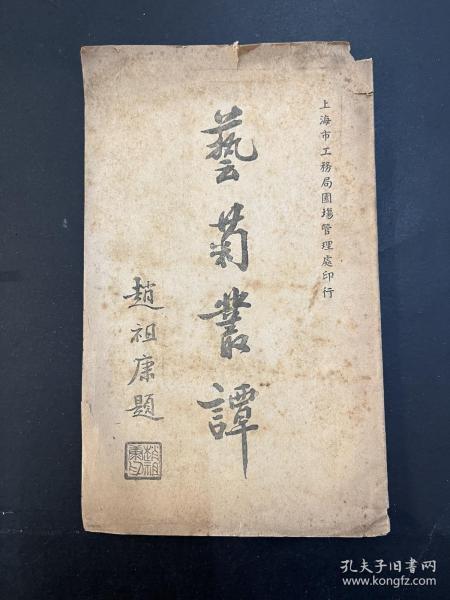 上海市工務局園場管理處印行
藝菊叢譚
趙祖康題
趙祖康印
孔夫子旧书网
www.kongfz.com